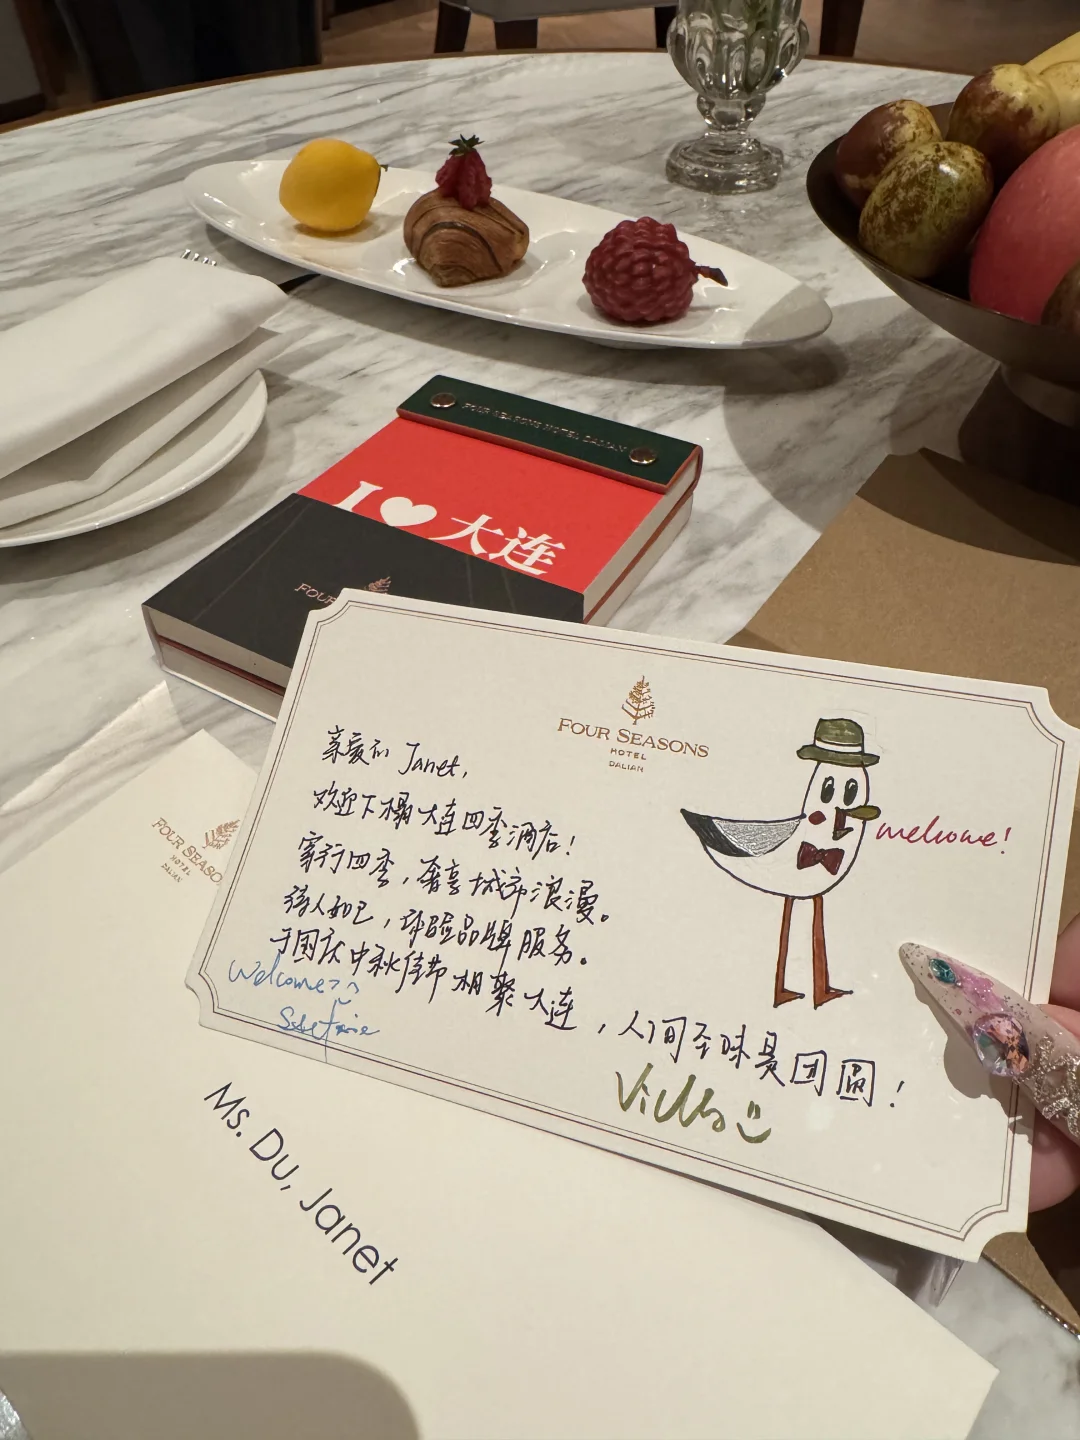 FOUR SEASONS HOTEL DALIAN
I ♥ 大连
FOUR
FOUR SEASONS
HOTEL
DALIAN
亲爱的 Janet,
欢迎下榻大连四季酒店!
寄行四季,奢享城市浪漫。
待人如己,体验品牌服务。
于国庆中秋佳节相聚大连,人间至味是团圆!
Welcome
welcome!
Vicky
FOUR SEASO
HOTEL
DALIAN
Ms. Du, Janet